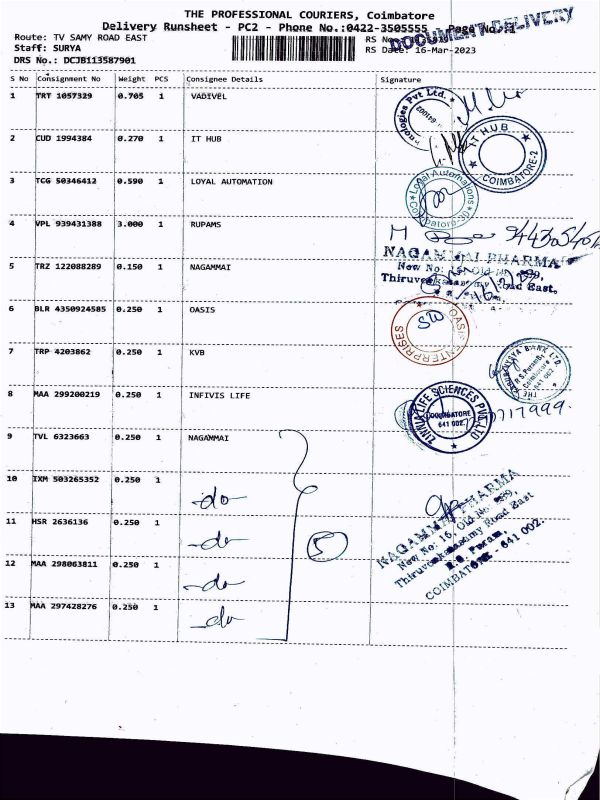 THE PROFESSIONAL COURIERS, Coimbatore
Delivery Runsheet - PC2 - Phone No.:0422-3505555 Page No.:1
DOCUMENT DELIVERY
Route: TV SAMY ROAD EAST
RS No.
Staff: SURYA
RS Date: 16-Mar-2023
DRS No.: DCJB113587901
S No Consignment No Weight PCS Consignee Details Signature
1 TRT 1057329 0.705 1 VADIVEL
nologies Pvt Ltd.
2 CUD 1994384 0.270 1 IT HUB
IT HUB
COIMBATORE-2
3 TCG 50346412 0.590 1 LOYAL AUTOMATION
Loyal Automations
Coimbatore-30
4 VPL 939431388 3.000 1 RUPAMS
NAGAMMAI PHARMA
5 TRZ 122088289 0.150 1 NAGAMMAI
New No: 16, Old No: 989,
Thiruvenkatasamy Road East,
6 BLR 4350924585 0.250 1 OASIS
OASIS ENTERPRISES
7 TRP 4203862 0.250 1 KVB
VYSYA BANK LTD
R.S.Puram Br
Coimbatore
641 002
8 MAA 299200219 0.250 1 INFIVIS LIFE
LIFE SCIENCES PVT LTD
COIMBATORE
641 002
9 TVL 6323663 0.250 1 NAGAMMAI
10 IXM 503265352 0.250 1
-do-
11 HSR 2636136 0.250 1
-do-
5
12 MAA 298063811 0.250 1
-do-
13 MAA 297428276 0.250 1
-do-
NAGAMMAI PHARMA
New No: 16, Old No: 989,
Thiruvenkatasamy Road East
R.S. Puram,
COIMBATORE - 641 002.